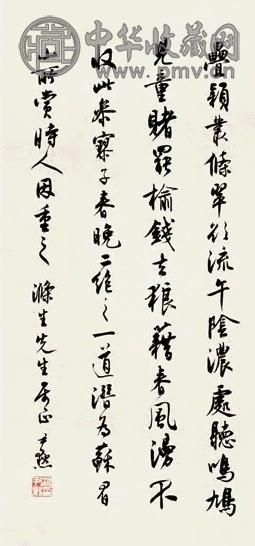 中华收藏网
www.pmv.cn
疊穎叢條翠欲流午陰濃處聽鳴鳩
兒童賭罷榆錢去狼藉春風漫不
收此參寥子春晚二絕之一道潛為蘇眉
山所賞時人因重之 滌生先生屬正 尹默